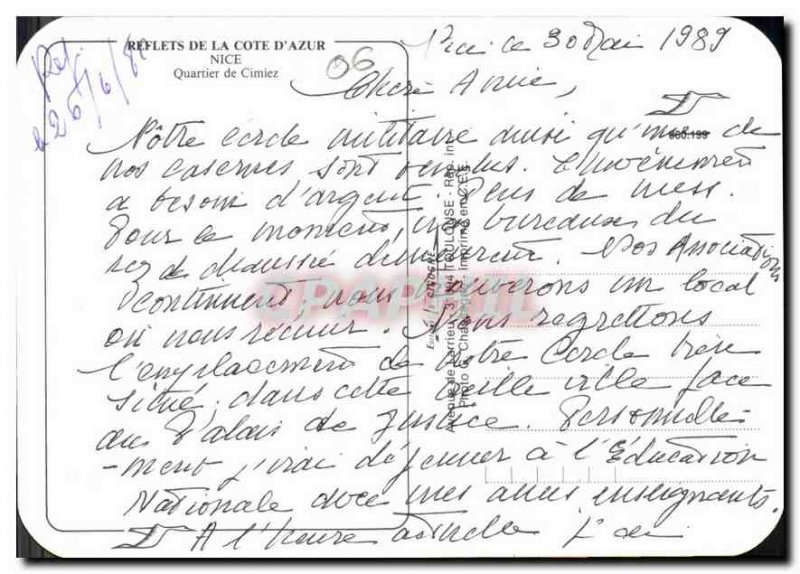 REFLETS DE LA COTE D'AZUR
NICE
Quartier de Cimiez
06
Nice le 30 Mai 1989
Chère Annie,
980.199
Nôtre cercle militaire ainsi qu'une de
nos casernes, sont vendus. Le
a besoin d'argent. Plus de mess.
Pour le moment, nos bureaux du
rez de chaussée demeurent. Nos Associations
continuent, nous trouverons un local
où nous réunir. Nous regrettons
l'emplacement de notre Cercle bien
situé, dans cette vieille ville face
au Palais de Justice. Personnelle-
-ment j'irai déjeuner à l'Éducation
Nationale avec mes amis enseignants.
A l'heure actuelle j'ai
TOULOUSE - Rép. Int.
Imprimé en C.E.E.